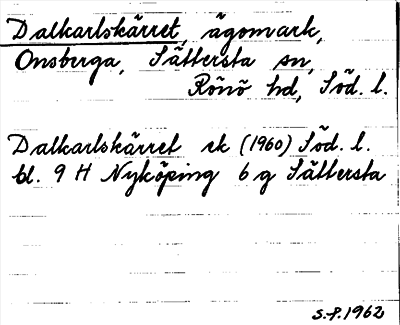 Dalkarlskärret, ägomark,
Onsberga, Sättersta sn,
Rönö hd, Söd. l.
Dalkarlskärret ek (1960) Söd. l.
bl. 9 H Nyköping 6 g Sättersta
S.f. 1962